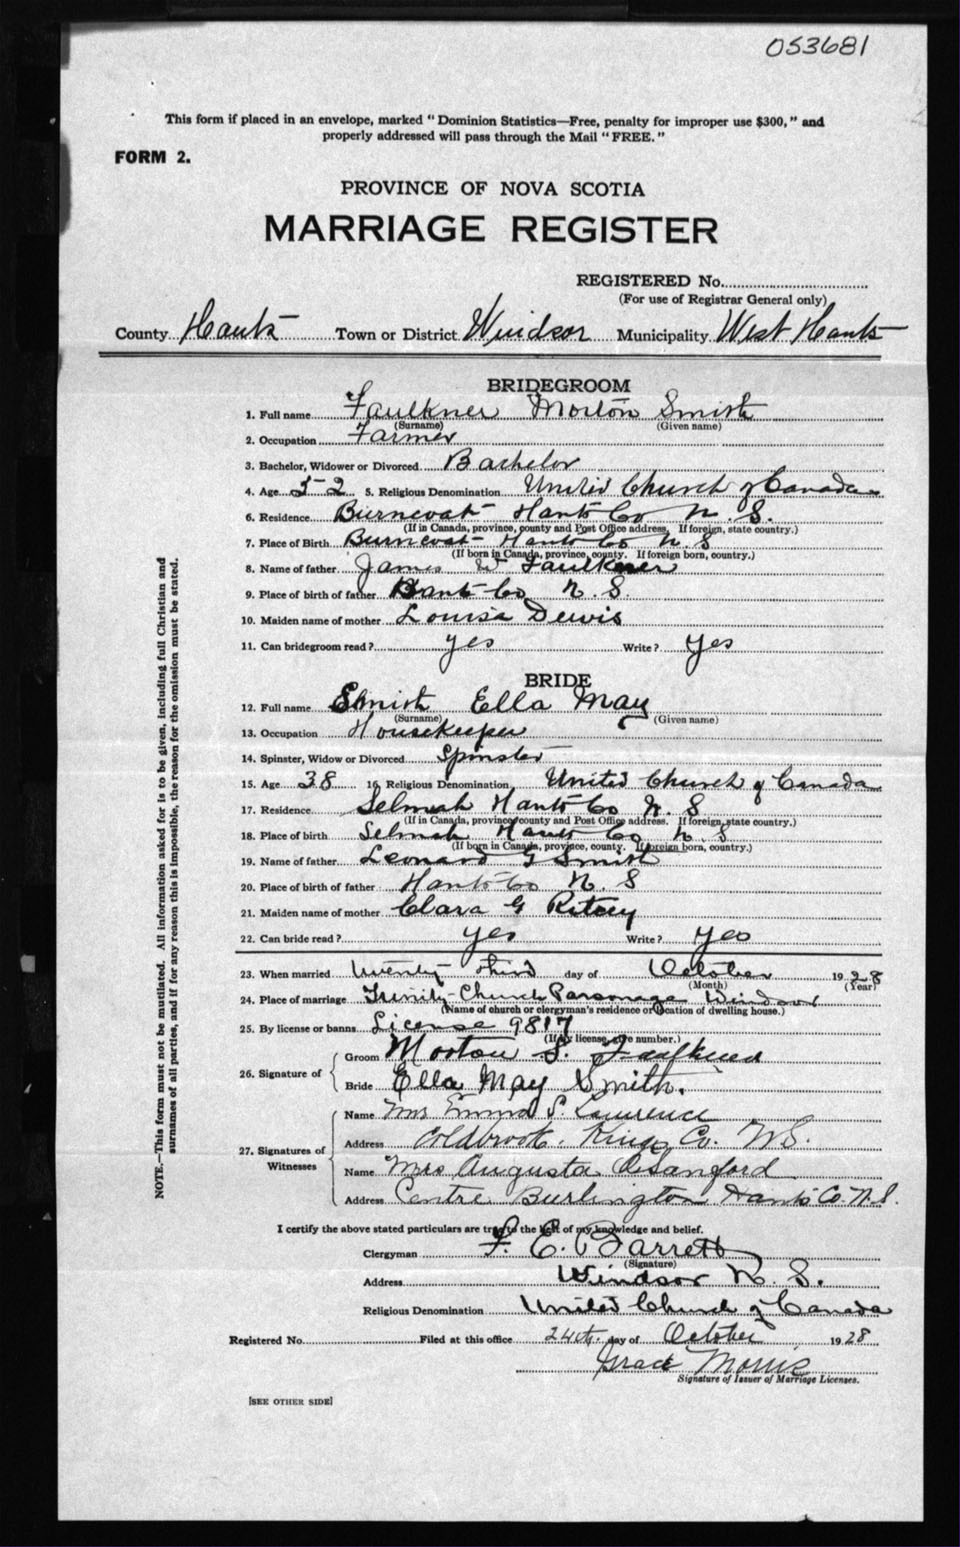 053681
This form if placed in an envelope, marked "Dominion Statistics—Free, penalty for improper use $300," and
properly addressed will pass through the Mail "FREE."
FORM 2.
PROVINCE OF NOVA SCOTIA
MARRIAGE REGISTER
REGISTERED No.
(For use of Registrar General only)
County Hants Town or District Windsor Municipality West Hants
BRIDEGROOM
1. Full name Faulkner Morton Smith
(Surname) (Given name)
2. Occupation Farmer
3. Bachelor, Widower or Divorced Bachelor
4. Age 52 5. Religious Denomination United Church of Canada
6. Residence Burncoat Hants Co N. S.
(If in Canada, province, county and Post Office address. If foreign, state country.)
7. Place of Birth Burncoat Hants Co N S
(If born in Canada, province, county. If foreign born, country.)
8. Name of father James W Faulkner
9. Place of birth of father Hants Co N. S.
10. Maiden name of mother Louisa Dewis
11. Can bridegroom read? yes Write? yes
BRIDE
12. Full name Smith Ella May
(Surname) (Given name)
13. Occupation Housekeeper
14. Spinster, Widow or Divorced Spinster
15. Age 38 16. Religious Denomination United Church of Canada
17. Residence Selmah Hants Co N. S
(If in Canada, province, county and Post Office address. If foreign, state country.)
18. Place of birth Selmah Hants Co N. S
(If born in Canada, province, county. If foreign born, country.)
19. Name of father Leonard G Smith
20. Place of birth of father Hants Co N. S
21. Maiden name of mother Clara G Ritcey
22. Can bride read? yes Write? yes
23. When married twenty third day of October 1928
(Month) (Year)
24. Place of marriage Trinity Church Parsonage Windsor
(Name of church or clergyman's residence or location of dwelling house.)
25. By license or banns License 9817
(If by license, give number.)
26. Signature of
Groom Morton S. Faulkner
Bride Ella May Smith.
27. Signatures of Witnesses
Name Mrs Emma S. Lawrence
Address Coldbrook. Kings Co. N.S.
Name Mrs Augusta Sanford
Address Centre Burlington Hants Co. N.S.
I certify the above stated particulars are true to the best of my knowledge and belief.
Clergyman F. E. Barrett
(Signature)
Address Windsor N. S.
Religious Denomination United Church of Canada
Registered No. Filed at this office 24th day of October 1928
Grace Morris
Signature of Issuer of Marriage Licenses.
[SEE OTHER SIDE]
NOTE.—This form must not be mutilated. All information asked for is to be given, including full Christian and
surnames of all parties, and if for any reason this is impossible, the reason for the omission must be stated.